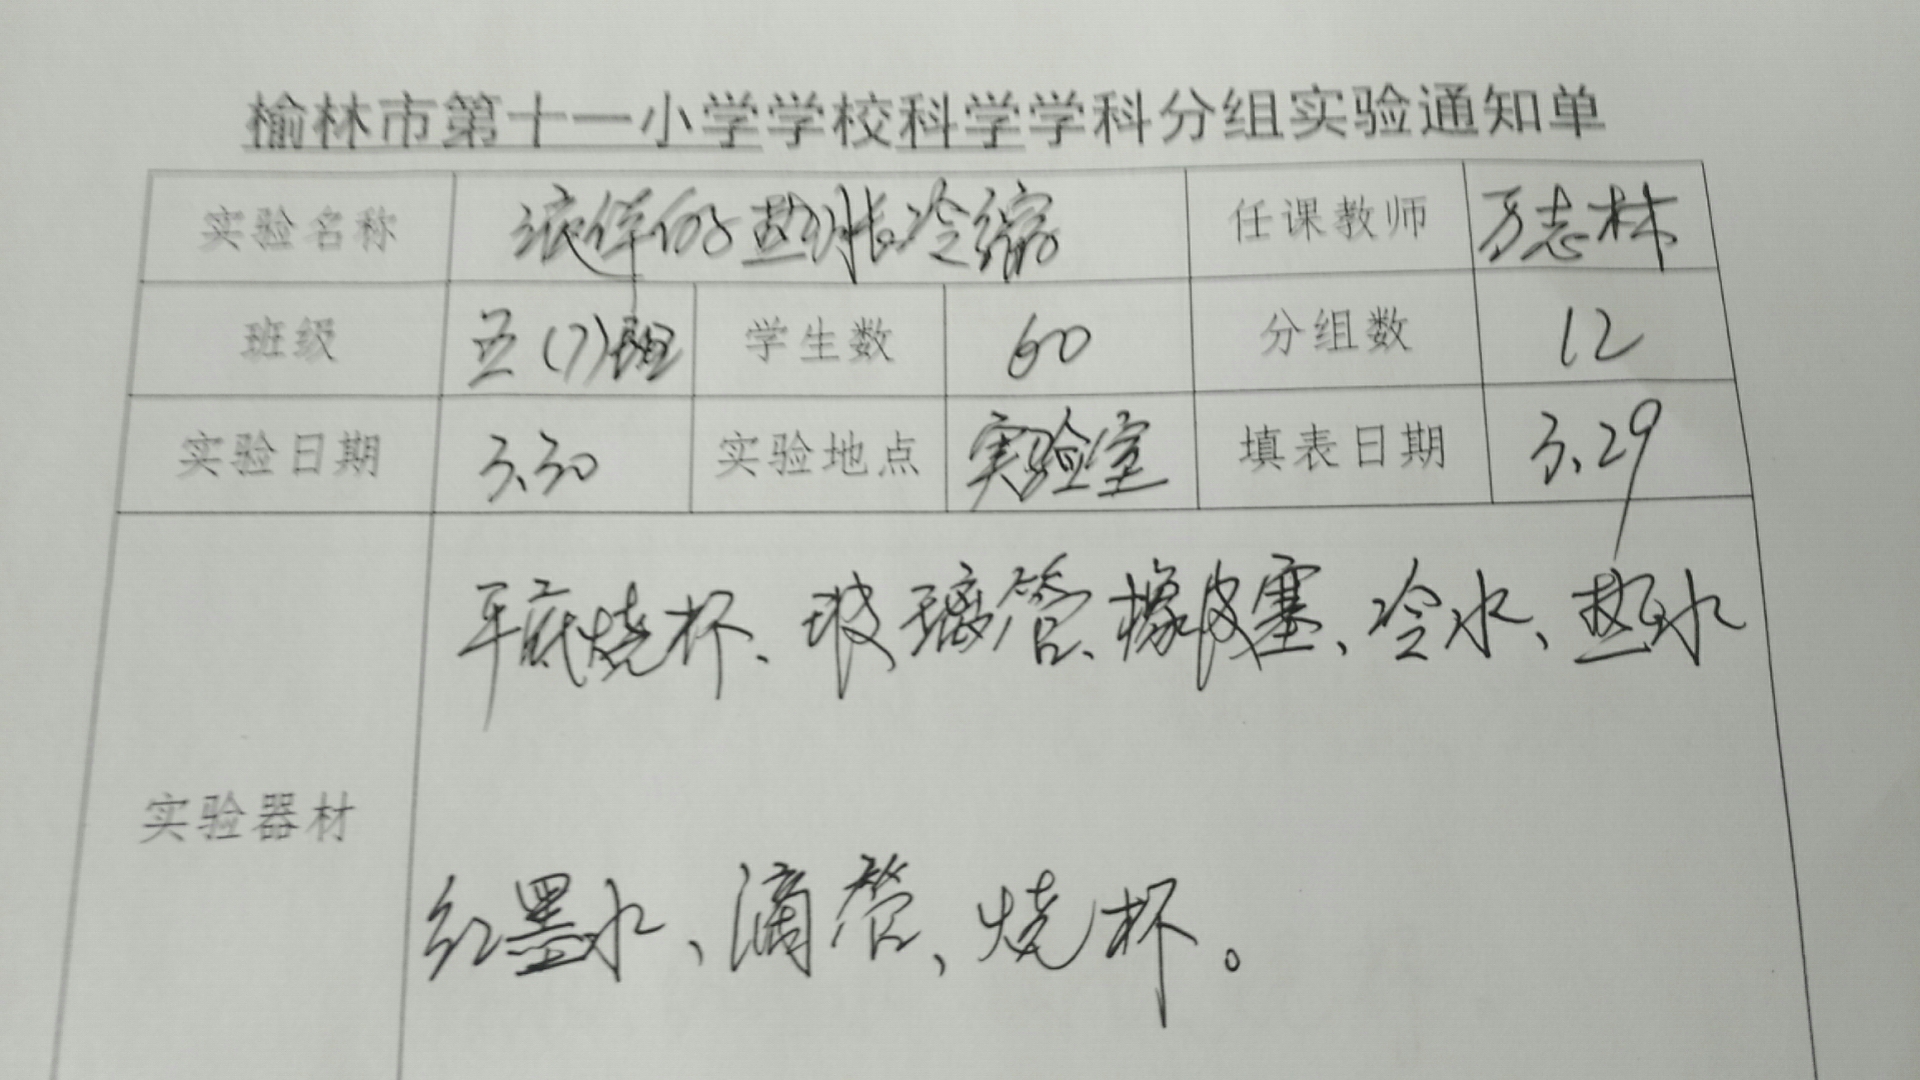 榆林市第十一小学学校科学学科分组实验通知单
实验名称 液体的热胀冷缩 任课教师 万志林
班级 五(7)班 学生数 60 分组数 12
实验日期 3.30 实验地点 实验室 填表日期 3.29
平底烧杯、玻璃管、橡皮塞、冷水、热水
实验器材
红墨水、滴管、烧杯。